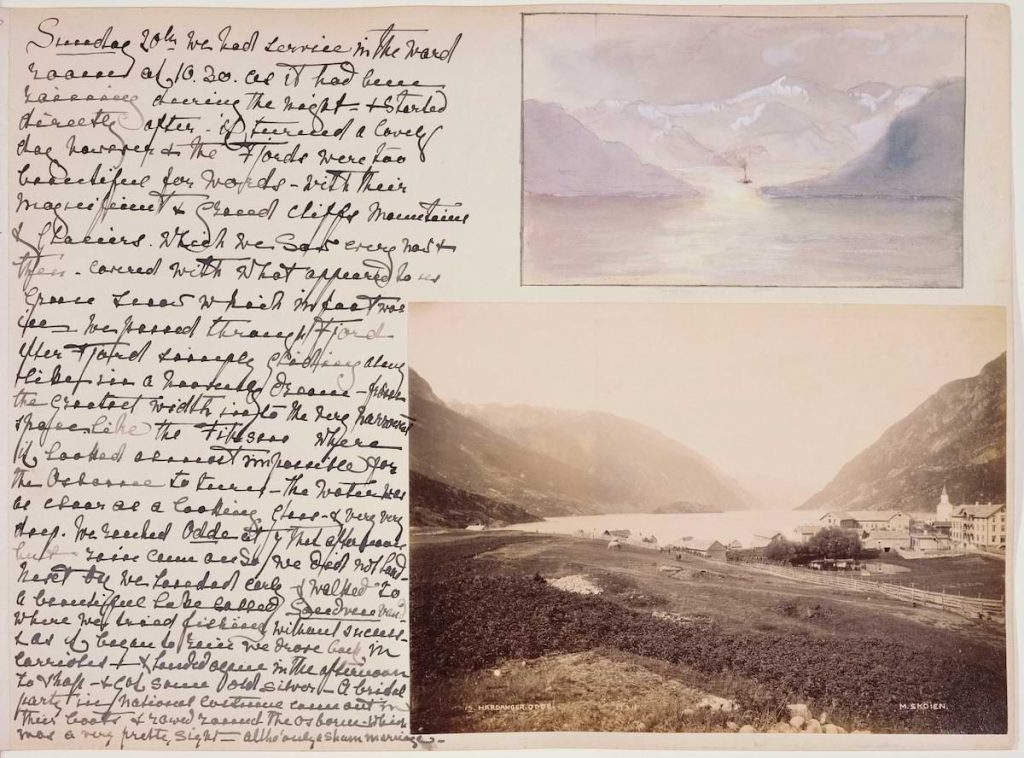 Sunday 20th we had service in the Ward
room at 10.20. as it had been
raining during the night - & started
directly after - it turned a lovely
day however & the Fjords were too
beautiful for words - with their
magnificent & Grand Cliffs Mountains
& Glaciers. Which we saw every now &
then - covered with what appeared to us
Green snow which in fact was
ice - We passed through Fjord
after Fjord simply gliding along
like in a heavenly dream - from
the Greatest width into the very narrowest
space like the where
it looked almost impossible for
the Osborne to turn - the water was
as clear as a looking glass - & very very
deep. We reached Odde at that afternoon
but rain came on So we did not land -
Next day we landed early & walked to
a beautiful Lake called
where we tried fishing without success -
& as it began to rain we drove back in
Carrioles - & landed again in the afternoon
to shop - & got some old silver - A bridal
party in National costume came out in
their boats & rowed round the Osborne which
was a very pretty sight - altho' only a sham marriage -
HARDANGER. ODDE
M. SKØIEN.